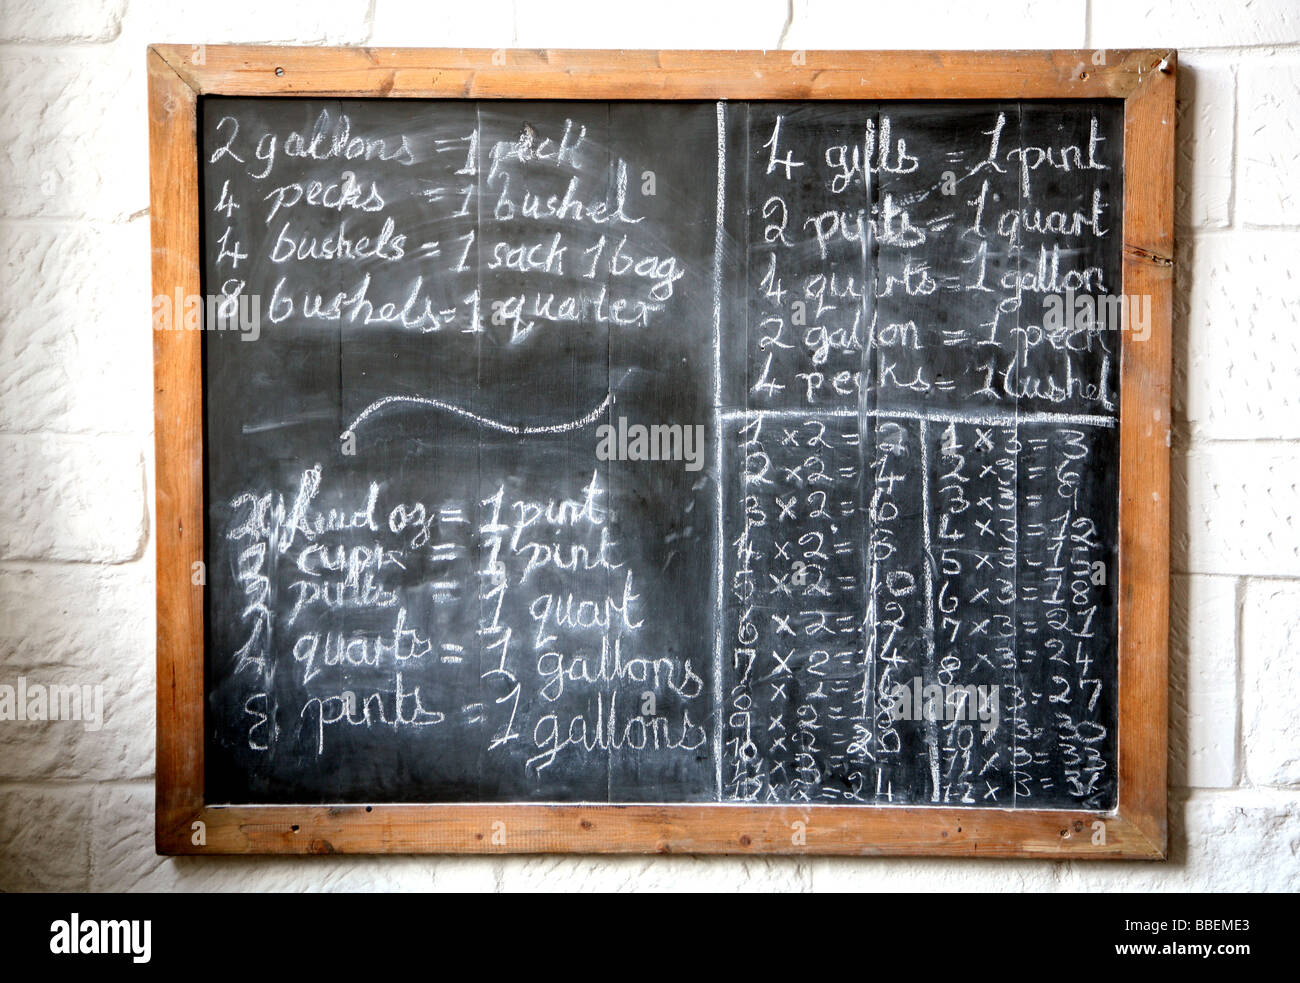 2 gallons = 1 peck
4 pecks = 1 bushel
4 bushels = 1 sack 1 bag
8 bushels = 1 quarter
20 fluid oz = 1 pint
2 cups = 1 pint
2 pints = 1 quart
4 quarts = 1 gallons
8 pints = 1 gallons
4 gills = 1 pint
2 pints = 1 quart
4 quarts = 1 gallon
2 gallon = 1 peck
4 pecks = 1 bushel
1 x 2 = 2
2 x 2 = 4
3 x 2 = 6
4 x 2 = 8
5 x 2 = 10
6 x 2 = 12
7 x 2 = 14
8 x 2 = 16
9 x 2 = 18
10 x 2 = 20
11 x 2 =
12 x 2 = 24
1 x 3 = 3
2 x 3 = 6
3 x 3 = 9
4 x 3 = 12
5 x 3 = 15
6 x 3 = 18
7 x 3 = 21
8 x 3 = 24
9 x 3 = 27
10 x 3 = 30
11 x 3 = 33
12 x 3 = 36
alamy
Image ID: BBEME3
www.alamy.com